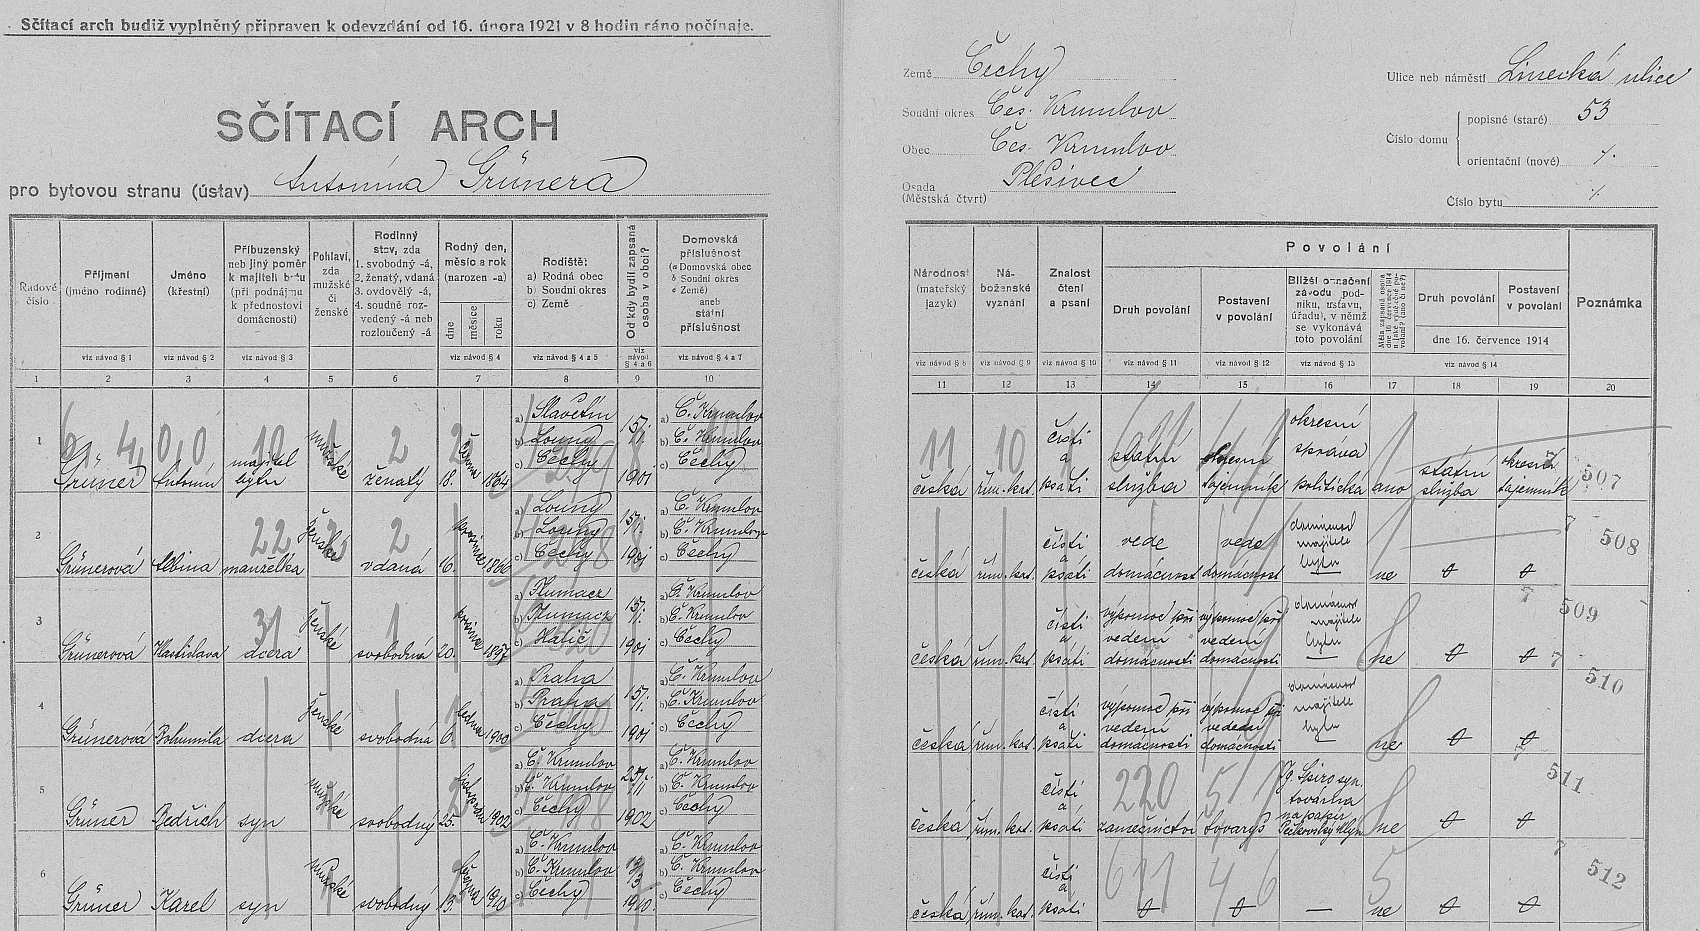 Sčítací arch budiž vyplněný připraven k odevzdání od 16. února 1921 v 8 hodin ráno počínaje.
SČÍTACÍ ARCH
pro bytovou stranu (ústav) Antonína Grünera
Země Čechy
Soudní okres Čes. Krumlov
Obec Čes. Krumlov
Osada Plešivec
(Městská čtvrť)
Ulice neb náměstí Linecká ulice
Číslo domu
popisné (staré) 53
orientační (nové) /.
Číslo bytu /.
Řadové číslo
Příjmení (jméno rodinné)
viz návod § 1
Jméno (křestní)
viz návod § 2
Příbuzenský neb jiný poměr k majiteli bytu (při podnájmu k přednostovi domácnosti)
viz návod § 3
Pohlaví, zda mužské či ženské
Rodinný stav, zda
1. svobodný -á,
2. ženatý, vdaná
3. ovdovělý -á,
4. soudně rozvedený -á neb rozloučený -á
Rodný den, měsíc a rok (narozen -a)
dne
měsíce
roku
viz návod § 4
Rodiště:
a) Rodná obec
b) Soudní okres
c) Země)
viz návod § 4 a 5
Od kdy bydlí zapsaná osoba v obci?
viz návod § 4 a 6
Domovská příslušnost
(a Domovská obec
b Soudní okres
c Země)
aneb státní příslušnost
viz návod § 4 a 7
1 2 3 4 5 6 7 8 9 10
Národnost (mateřský jazyk)
viz návod § 8
Náboženské vyznání
viz návod § 9
Znalost čtení a psaní
viz návod § 10
Povolání
Druh povolání
viz návod § 11
Postavení v povolání
viz návod § 12
Bližší označení závodu (podniku, ústavu, úřadu), v němž se vykonává toto povolání
viz návod § 13
Druh povolání
Postavení v povolání
dne 16. července 1914
viz návod § 14
Poznámka
11 12 13 14 15 16 17 18 19 20
1 Grüner Antonín majitel bytu mužské ženatý 18. června 1864 a) Slavětín b) Louny c) Čechy 15/1. 1901 a) Č. Krumlov b) Č. Krumlov c) Čechy
česká řím. kat. čísti a psáti státní služba okresní tajemník okresní správa politická ano státní služba okresní tajemník 507
2 Grünerová Albina manželka ženské vdaná 16. prosince 1866 a) Louny b) Louny c) Čechy 15/1. 1901 a) Č. Krumlov b) Č. Krumlov c) Čechy
česká řím. kat. čísti a psáti vede domácnost vede domácnost domácnost majitele bytu ne 0 0 508
3 Grünerová Vlastislava dcera ženské svobodná 20. prosince 1897 a) Tlumacz b) Tlumacz c) Halič 15/1. 1901 a) Č. Krumlov b) Č. Krumlov c) Čechy
česká řím. kat. čísti a psáti výpomoc při vedení domácnosti výpomoc při vedení domácnosti domácnost majitele bytu ne 0 0 509
4 Grünerová Bohumila dcera ženské svobodná 6. ledna 1900 a) Praha b) Praha c) Čechy 15/1. 1901 a) Č. Krumlov b) Č. Krumlov c) Čechy
česká řím. kat. čísti a psáti výpomoc při vedení domácnosti výpomoc při vedení domácnosti domácnost majitele bytu ne 0 0 510
5 Grüner Bedřich syn mužské svobodný 25. listopadu 1902 a) Č. Krumlov b) Č. Krumlov c) Čechy 25/11 1902 a) Č. Krumlov b) Č. Krumlov c) Čechy
česká řím. kat. čísti a psáti zámečnictví tovaryš Spiro syn. továrna na papír Pečkovský Mlýn ne 0 0 511
6 Grüner Karel syn mužské svobodný 1910 a) Č. Krumlov b) Č. Krumlov c) Čechy 1910. a) Č. Krumlov b) Č. Krumlov c) Čechy
česká řím. kat. čísti a psáti 0 0 — ne 0 0 512